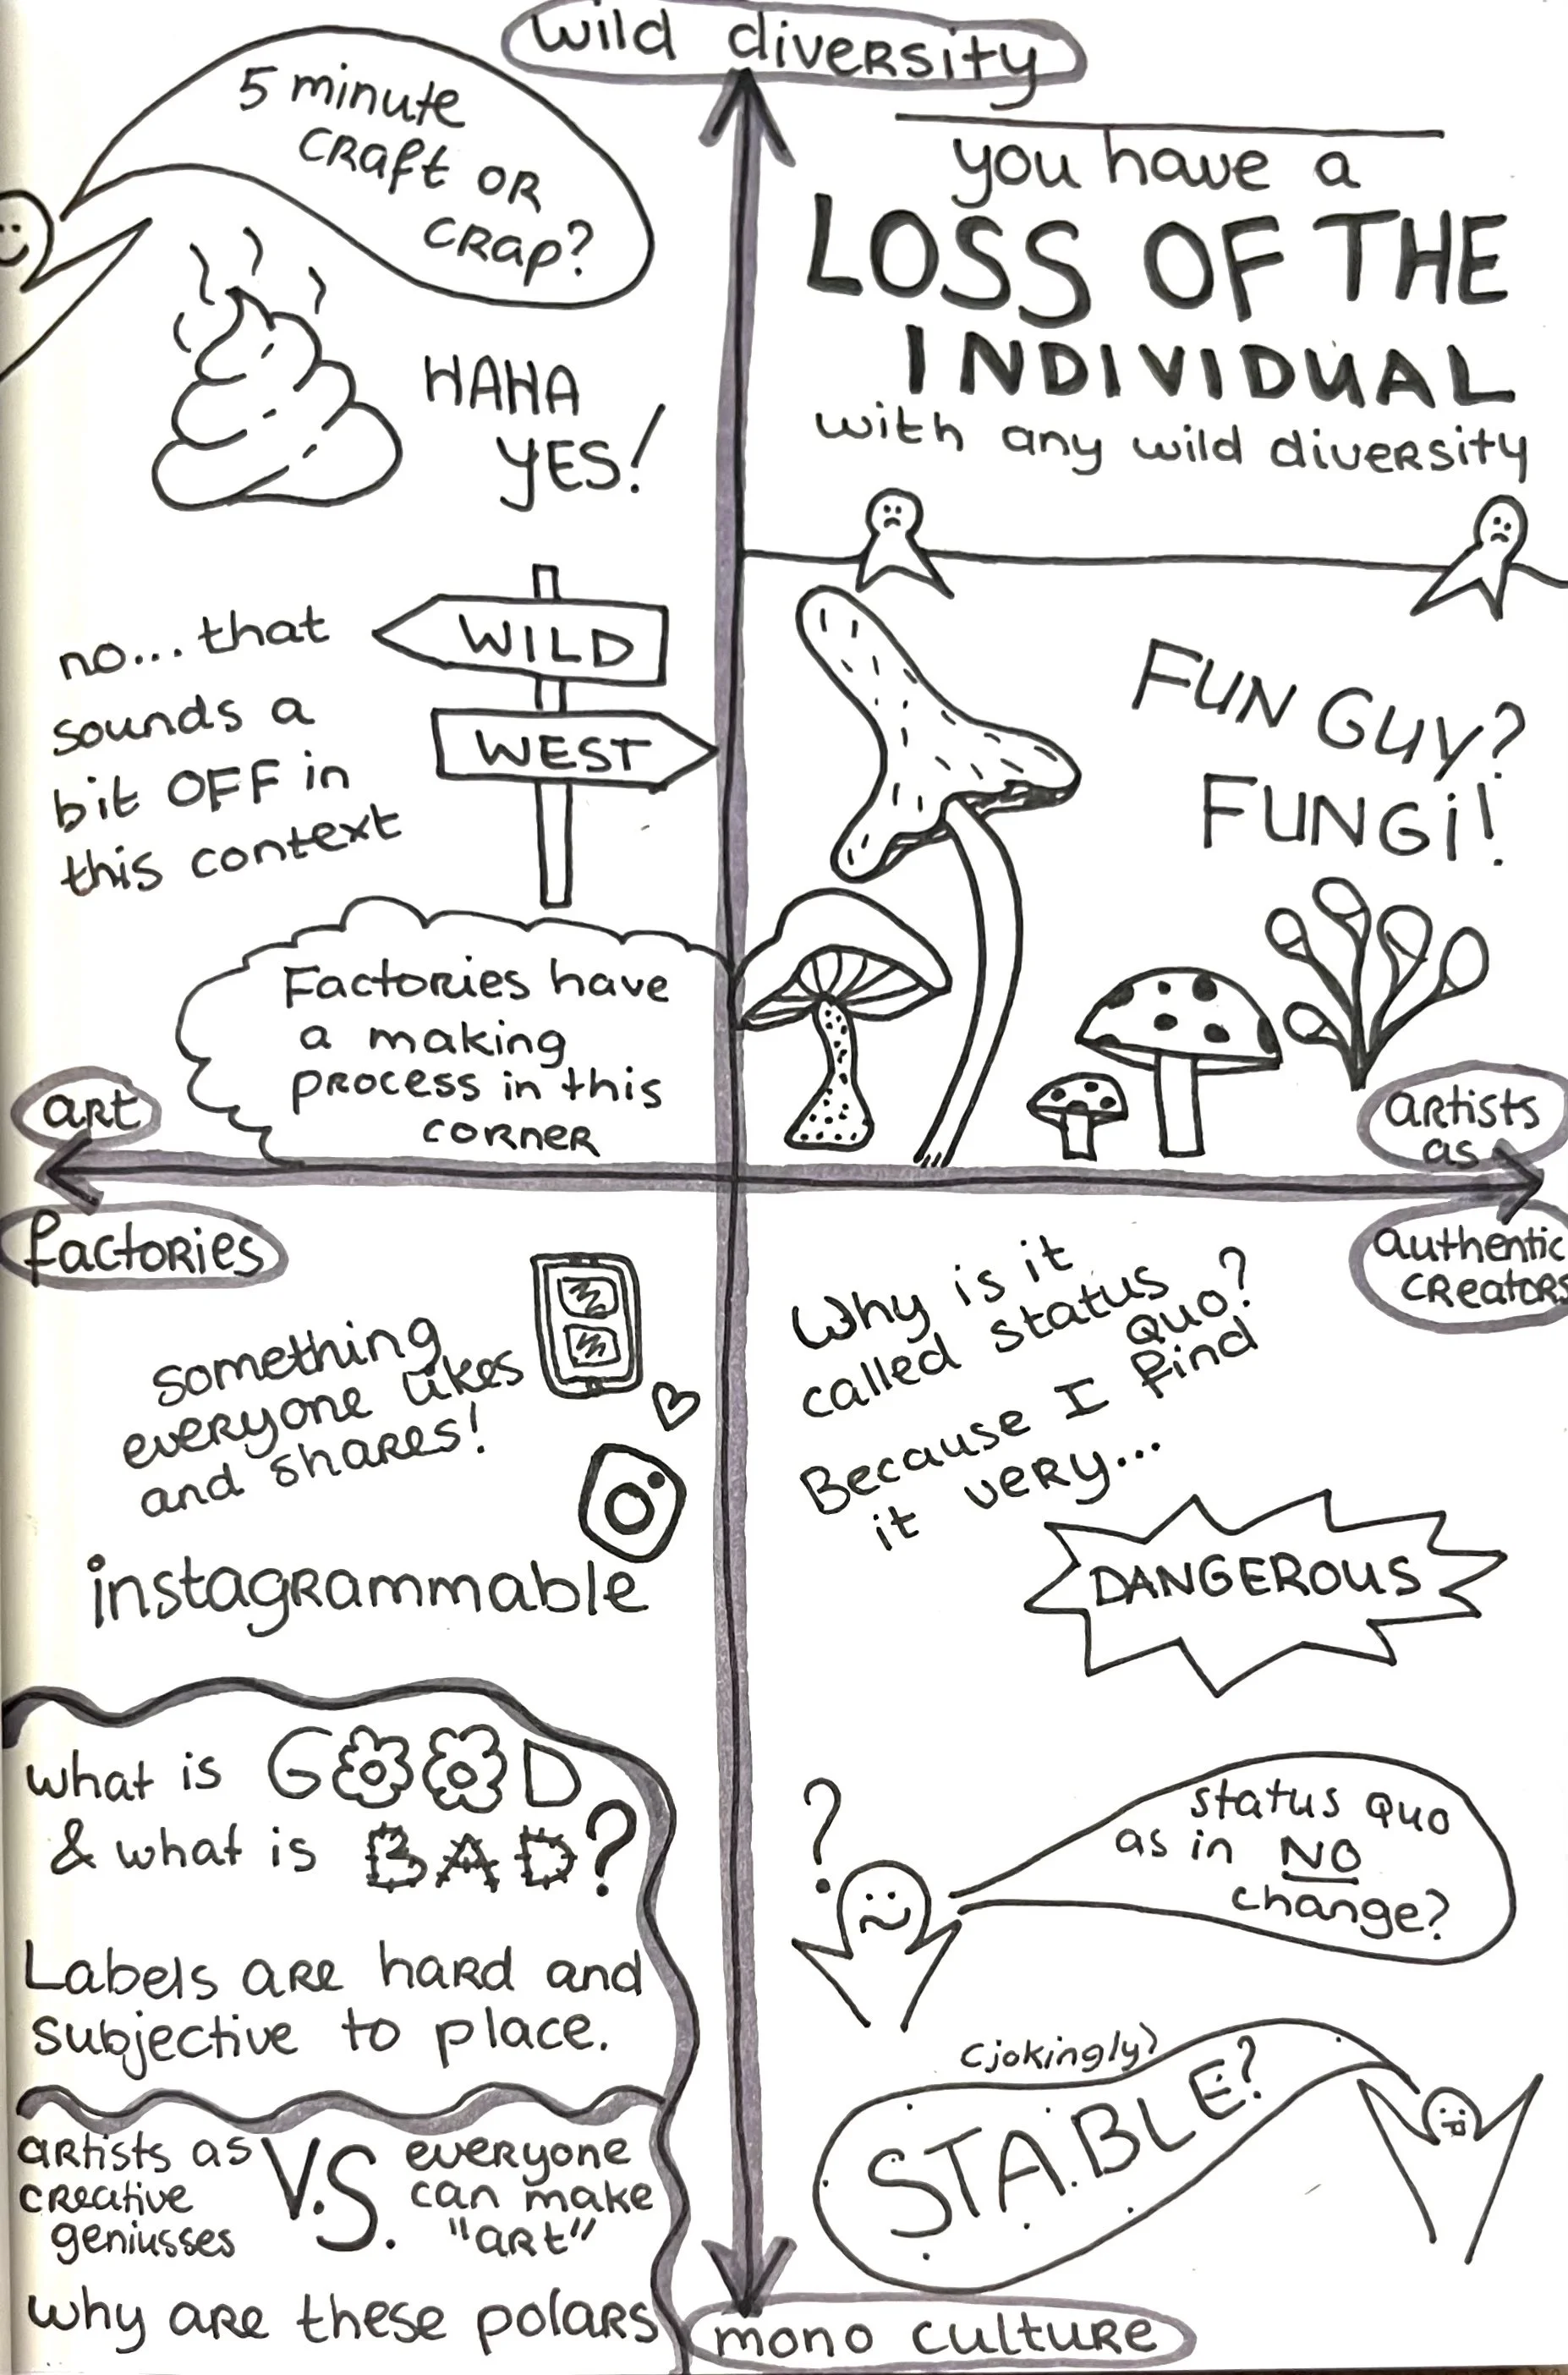 wild diversity
5 minute
craft or
crap?
HAHA
YES!
you have a
LOSS OF THE
INDIVIDUAL
with any wild diversity
no... that
sounds a
bit OFF in
this context
WILD
WEST
FUN GUY?
FUNGi!
Factories have
a making
process in this
corner
art
factories
artists
as
authentic
creators
something
everyone likes
and shares!
instagrammable
Why is it
called status
quo?
Because I find
it very...
DANGEROUS
what is GOOD
& what is BAD?
Labels are hard and
subjective to place.
?
status quo
as in NO
change?
(jokingly)
STABLE?
artists as
creative
geniusses
V.S.
everyone
can make
"art"
why are these polars
mono culture